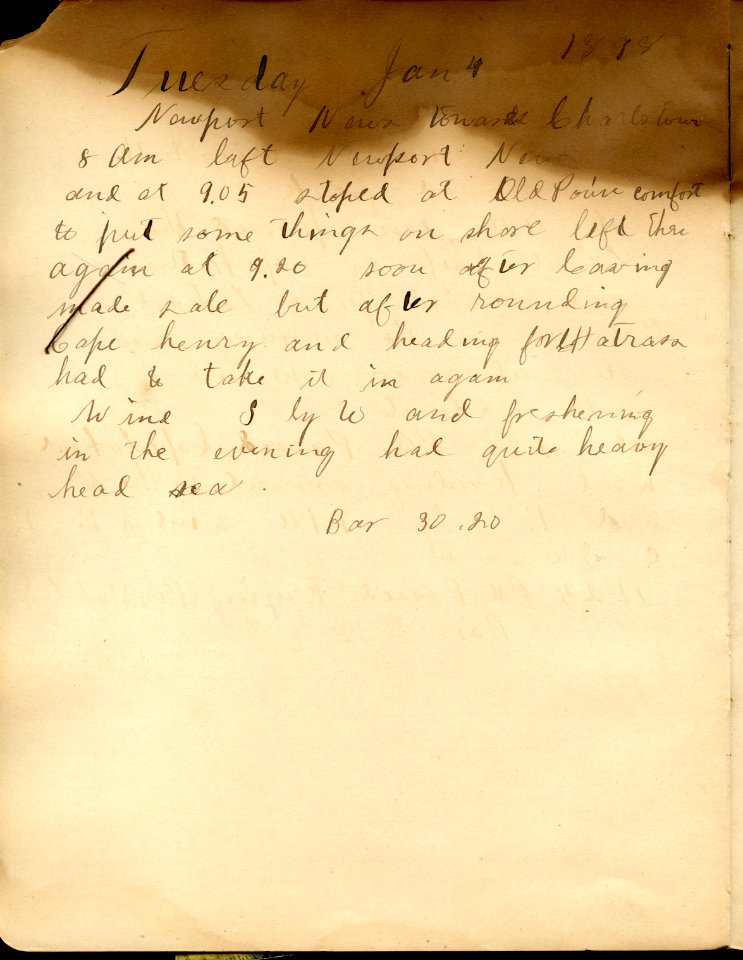 Tuesday Jan 4 1898
Newport News towards Charlestown
8 Am left Newport News
and at 9.05 stoped at Old Poin comfort
to put some things on shore left there
again at 9.20 soon after leaving
made sale but after rounding
Cape henry and heading for Hatrass
had to take it in again
Wind S by W and freshening
in the evening had quite heavy
head sea.
Bar 30.20